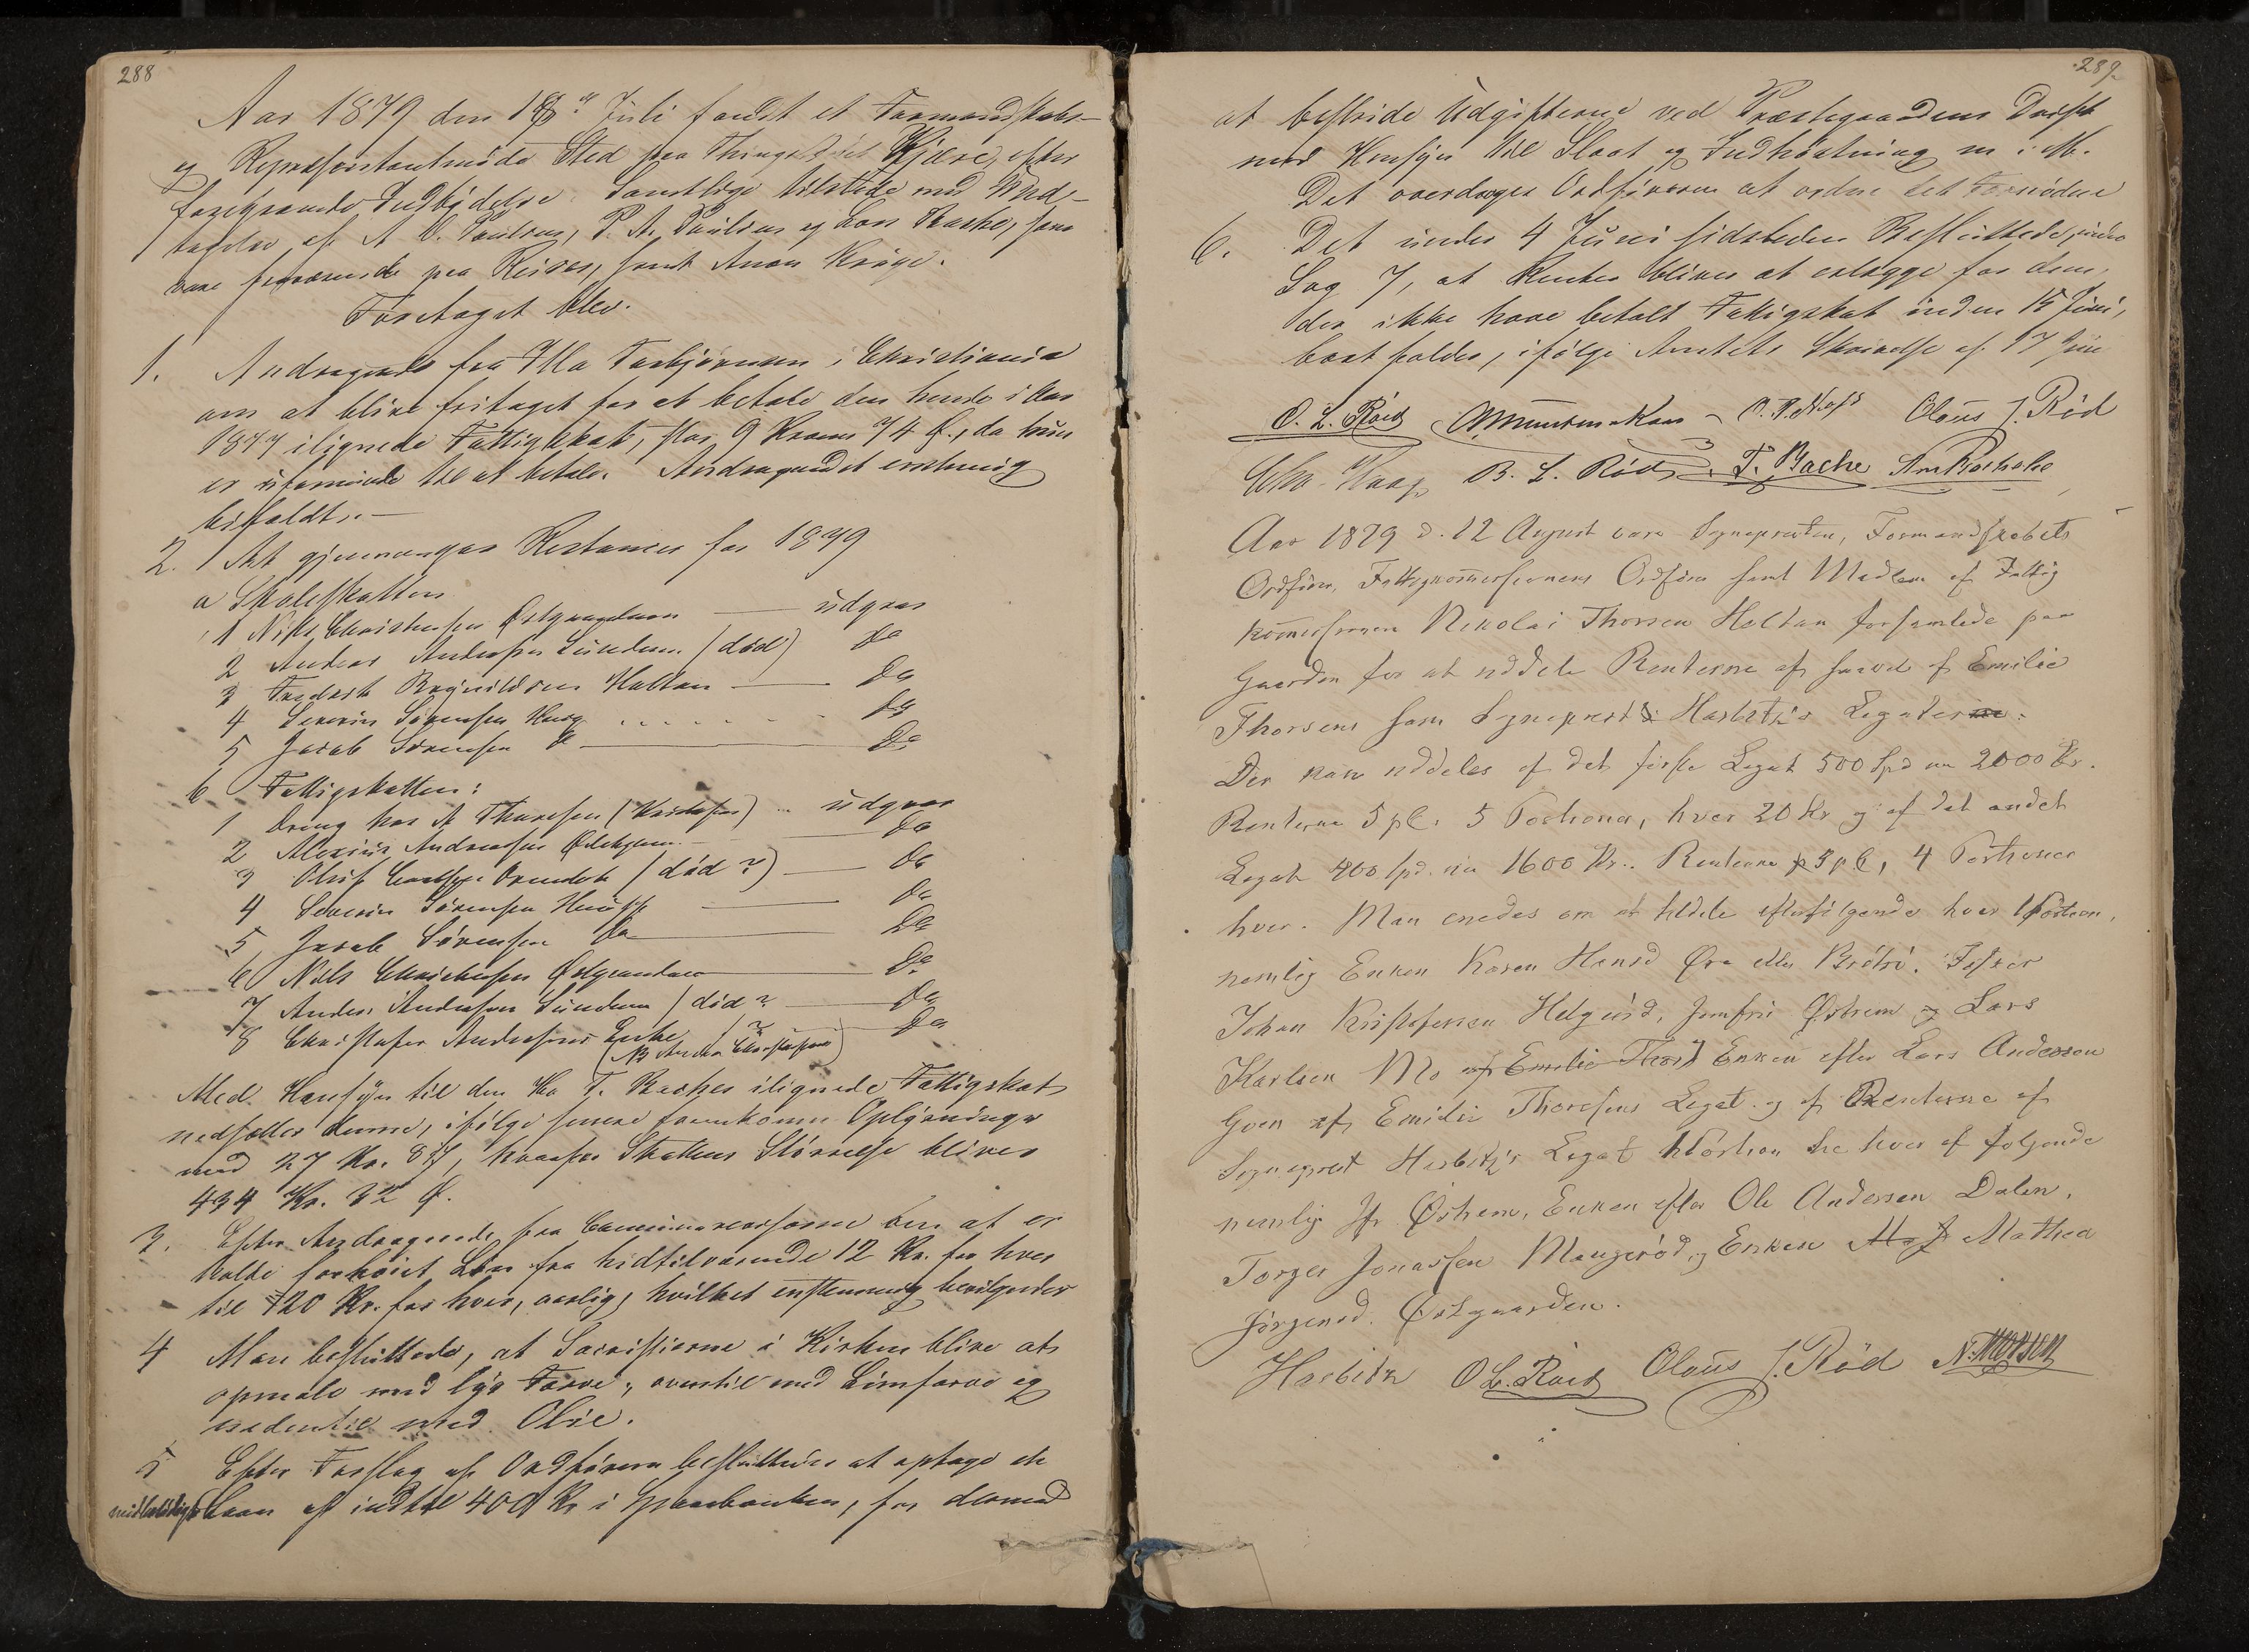 288
Aar 1879 den 18de Juli fandt et Formandskabs-
og Repræsentantmøde Sted paa Thingstedet Kjære, efter
foregaaende Indbydelse. Samtlige tilstede med Und-
tagelse af A. O. Paulsen, P. A. Paulsen og Lars Bache, som
vare fraværende paa Reiser, samt Anon Krøge.
Foretaget blev.
1. Andragende fra Ella Torbjørnsen, Christiania
om at blive fritaget for at betale den hende i Aar
1877 ilignede Fattigskat, stor 9 Kroner 74 Ø., da hun
er uformuende til at betale. Andragendet enstemmig
bifaldt. —
2. At gjennemgaa Restancer for 1879
a Skoleskatten
1 Nils Christensen Østgaarden — udgaar
2 Anders Andersen Sundene (død) Do
3 Fredrik Bognildsen Holtan — Do
4 Severin Sørensen Haug . . . . . Do
5 Jacob Sørensen D — Do
b Fattigskatten:
1 Dreng hos A Thoresen (Kristofer) .. udgaar
2 Alexius Andreassen — Do
3 Oluf (død?) — Do
4 Severin Sørensen — Do
5 Jacob Sørensen Do — Do
6 Niels Christensen Østgaarden — Do
7 Anders Andersen Sundene (død? — Do
8 Christofer Andersens Enke (? — Do
(NB Anders Christofersen)
Med Hensyn til den Hr T. Baches ilignede Fattigskat
nedsættes denne, ifølge senere fremkomne Oplysninger
med 27 Kr. 87, hvorfor Skattens Størrelse bliver
434 Kr. 32 Ø.
3. Efter Andragende fra om at er
holde forhøiet Løn fra hidtilværende 12 Kr. for hver
til 120 Kr. for hver, aarlig, hvilket enstemmig bevilgedes
4 Man besluttede, at Sacristierne i Kirken blive at
opmale med lys Farve, oventil med Limfarve og
nedentil med Olie.
5 Efter Forslag af Ordføreren besluttedes at optage et
midlertidigt Laan af indtil 400 Kr i Sparebanken, for dermed
289
at bestride Udgifterne ved Præstegaardens Drift
med Hensyn til Slaat og Indhøstning m. i M.
Det overdrages Ordføreren at ordne det Fornødne
6. Det under 4 Juni sidstleden Besluttede, under
Sag 7, at Renter bliver at erlægge for dem,
der ikke have betalt Fattigskat inden 15 Juni,
bortfalder, ifølge Amtets Skrivelse af 17 Juni
O. L. Röed O. P. Næss Olaus J. Röd
Chr. Haag B. L. Röd T. Bache
Aar 1879 d. 12 August vare Sognepresten, Formandskabets
Ordfører, Fattigkommissionens Ordfører samt Medlem af Fattig
kommissionen Nikolai Thorsen Holtan forsamlede paa
Gaarden for at uddele Renterne af saavel af Emilie
Thorsens som Sogneprest Hasbitz's Legater.
Der kan uddeles af det første Legat 500 Spd nu 2000 Kr.
Renterne 5 pC. 5 Portioner, hver 20 Kr og af det andet
Legat 400 Spd. nu 1600 Kr.. Renterne 5 pC, 4 Portioner
hver. Man enedes om at tildele efterfølgende hver 1 Portion,
nemlig Enken Karen Hansd Øra eller Brötsö. Fisker
Johan Kristofersen Helgerød, Jomfru Østrem og Lars
Karlsen Mo af Emilie Thors Enken efter Lars Andersen
Goen af Emilie Thoresens Legat og af Renterne af
Sogneprest Hasbitz's Legat 1 Portion til hver af følgende
nemlig Jfr Østrem, Enken efter Ole Andersen Dalen,
Torger Jonassen Maugerød, og Enken Mathea
Jörgensd. Östgaarden.
Hasbitz O L. Röed Olaus J. Röd N. THORSEN